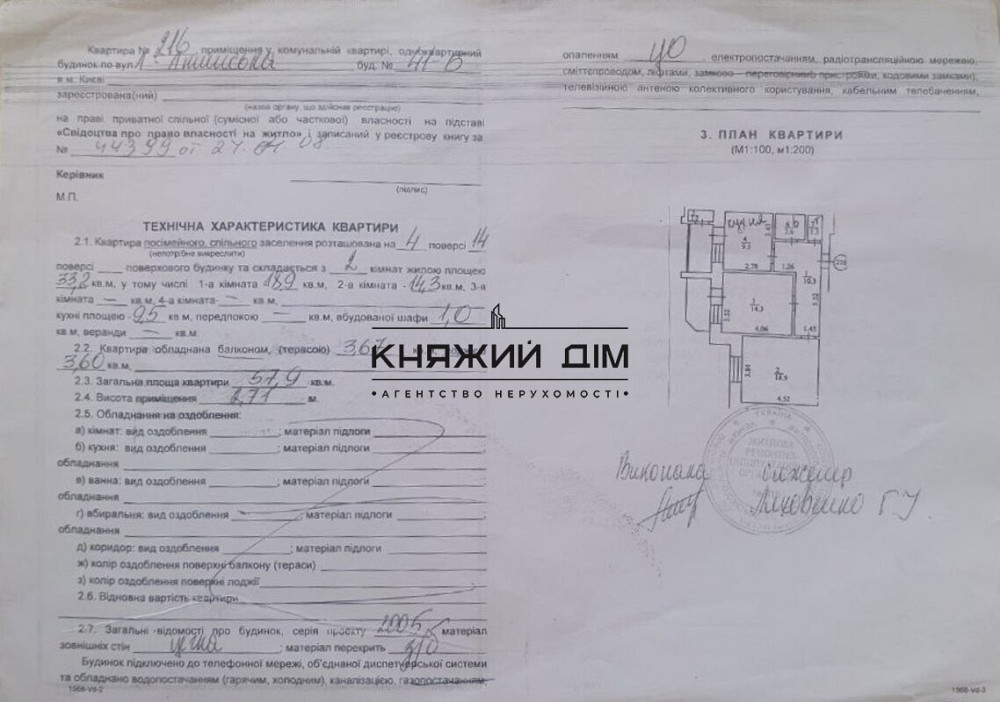 Квартира № 216 приміщення у комунальній квартирі, одноквартирний
будинок по вул. буд. № 41-Б
в м. Києві
зареєстрована(ний)
(назва органу, що здійснив реєстрацію)
на праві приватної спільної (сумісної або часткової) власності на підставі
«Свідоцтва про право власності на житло» і записаний у реєстрову книгу за
№ 44399 от 08
Керівник
(підпис)
М.П.
ТЕХНІЧНА ХАРАКТЕРИСТИКА КВАРТИРИ
2.1. Квартира посімейного, спільного заселення розташована на 4 поверсі 14
(непотрібне викреслити)
поверсі ____ поверхового будинку та складається з 2 кімнат жилою площею
33,2 кв.м, у тому числі 1-а кімната 18,9 кв.м, 2-а кімната - 14,3 кв.м, 3-я
кімната — кв.м, 4-а кімната- — кв.м,
кухні площею - 9,5 кв.м, передпокою — кв.м, вбудованої шафи 1,0
кв.м, веранди — кв.м.
2.2. Квартира обладнана балконом, (терасою) 3,67
3,60 кв.м,
2.3. Загальна площа квартири 57,9 кв.м.
2.4. Висота приміщення 2,71 м.
2.5. Обладнання на оздоблення:
а) кімнат: вид оздоблення ; матеріал підлоги
б) кухня: вид оздоблення ; матеріал підлоги
обладнання
в) ванна: вид оздоблення ; матеріал підлоги
обладнання
г) вбиральня: вид оздоблення ; матеріал підлоги
обладнання
д) коридор: вид оздоблення ; матеріал підлоги
ж) колір оздоблення поверхні балкону (тераси)
з) колір оздоблення поверхні лоджії
2.6. Відновна вартість квартири
2.7. Загальні відомості про будинок, серія проєкту матеріал
зовнішніх стін цегла ; матеріал перекрить з/б
Будинок підключено до телефонної мережі, об'єднаної диспетчерської системи
та обладнано водопостачання (гарячим, холодним), каналізацією, газопостачанням,
1568-Vd-2
опаленням ЦО електропостачанням, радіотрансляційною мережею,
сміттєпроводом, ліфтами, замково – переговірними пристроями, кодовими замками),
телевізійною антеною колективного користування, кабельним телебаченням,
3. ПЛАН КВАРТИРИ
(М1:100, м1:200)
кухня
4
9.5
2.78
1.26
10.3
216
1
14.3
3.52
3.52
4.06
1.45
2
18.9
3.84
4.52
УКРАЇНА
Виконала інженер
Ляховенко Г У
1568-Vd-3
КНЯЖИЙ ДІМ
•АГЕНТСТВО НЕРУХОМОСТІ•